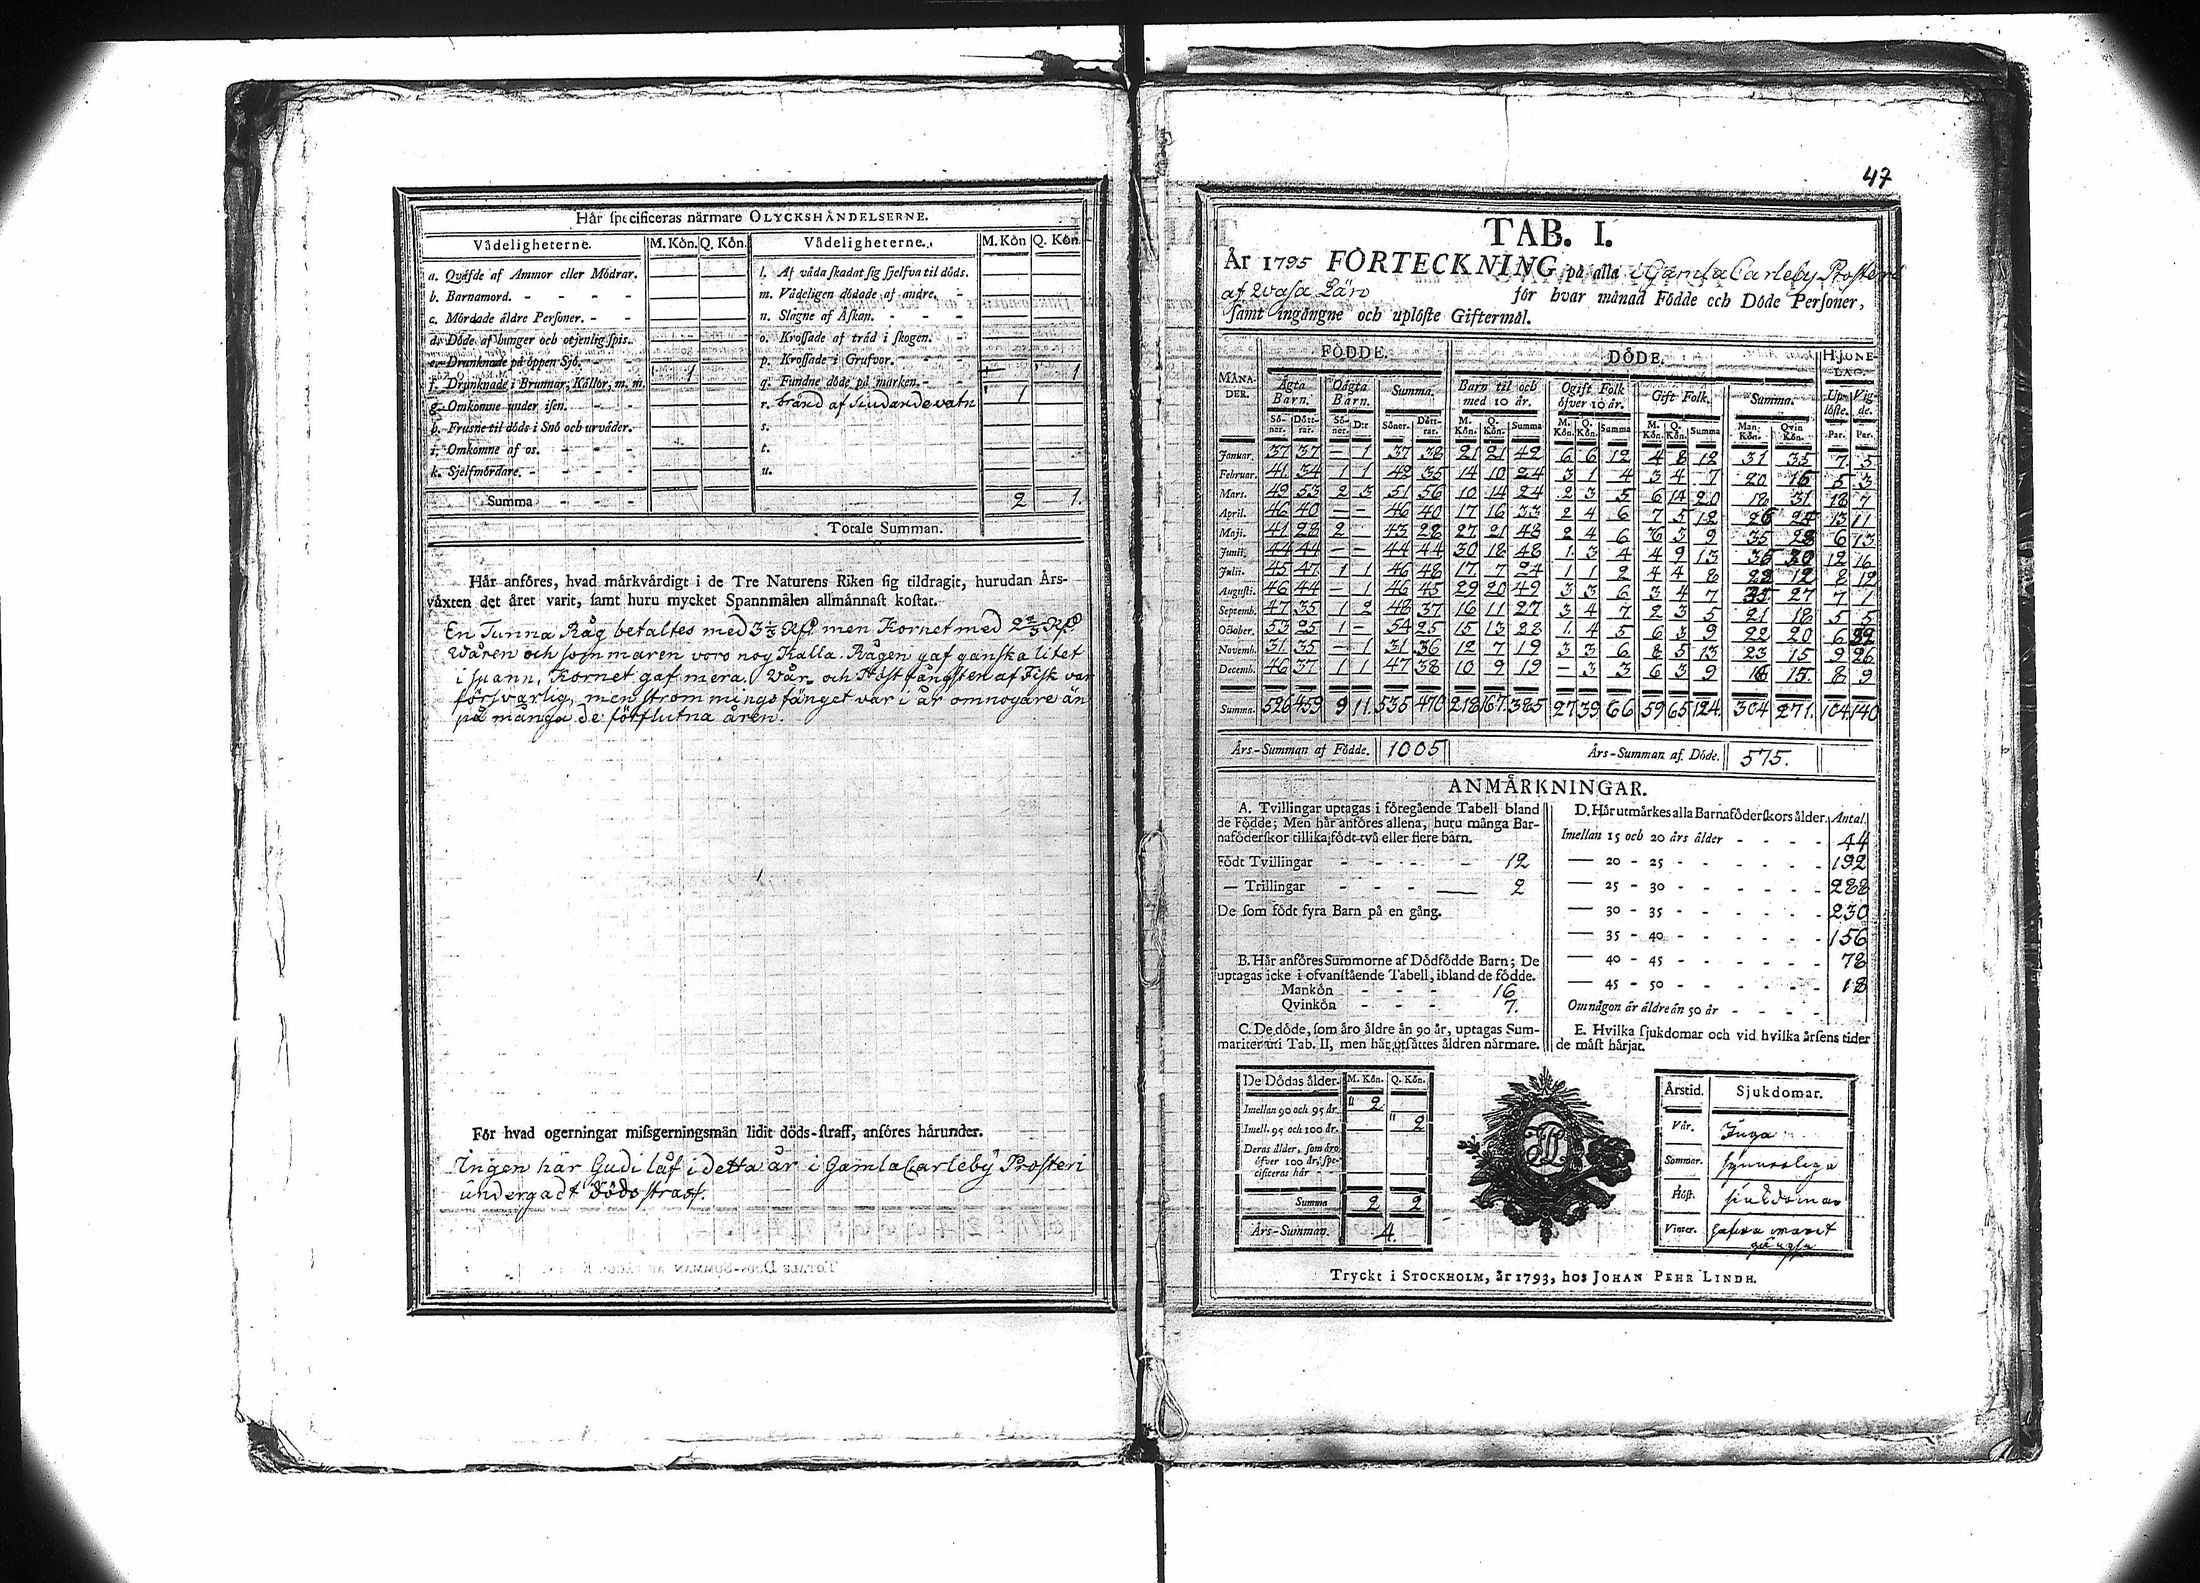 Här specificeras närmare OLYCKSHÅNDELSERNE.
Vådeligheterne. M. Kön. Q. Kön. Vådeligheterne. M. Kön Q. Kön
a. Qväfde af Ammor eller Mödrar. l. Af våda skadat sig sjelfva til döds.
b. Barnamord. - - - m. Vådeligen dödade af andre. -
c. Mördade äldre Personer. - - n. Slagne af Åskan. - - -
d. Döde af hunger och otjenlig spis. o. Krossade af träd i skogen. -
e. Drunknade på öppen Sjö. - p. Krossade i Grufvor. - -
f. Drunknade i Brunnar, Källor, m. m. 1 q. Fundne döde på marken. - - 1
g. Omkomne under isen. - - r. bränd af siudande vatn 1
h. Frusne til döds i Snö och urväder. s.
i. Omkomne af os. - - - t.
k. Sjelfmördare. - - - - u.
Summa - - - 2 1.
Totale Summan.
Här anföres, hvad märkvärdigt i de Tre Naturens Riken sig tildragit, hurudan Års-
växten det året varit, samt huru mycket Spannmålen allmännast kostat.
En Tunna Råg betaltes med 3 1/3 Rd men Kornet med 2 2/3 Rd
Wåren och sommaren voro nog Kalla. Rågen gaf ganska litet
i spann, Kornet gaf mera. Vår- och Höst fångsten af Fisk var
försvarlig, men strömmings fänget var i år omnogare än
på många de förflutna åren.
För hvad ogerningar missgerningsmän lidit döds-straff, anföres härunder.
Ingen har Gudi låf i detta år i Gamla Carleby Prosteri
undergadt dödsstraff.
47
TAB. I.
År 1795 FÖRTECKNING på alla i Gamla Carleby Prosteri
af Wasa Län för hvar månad Födde och Döde Personer,
samt ingångne och uplöste Giftermål.
FÖDDE. DÖDE. HJONE-
LAG.
MÅNA-
DER.
Ägta Barn. Oägta Barn. Summa. Barn til och med 10 år. Ogift Folk öfver 10 år. Gift Folk. Summa. Up-löste. Vig-de.
Sö-ner. Dött-rar. Sö-ner. D:r Söner. Dött-rar. M. Kön. Q. Kön. Summa M. Kön. Q. Kön. Summa M. Kön. Q. Kön. Summa Man-Kön. Qvin Kön. Par. Par.
Januar. 37 37 — 1 37 38 21 21 42 6 6 12 4 8 12 31 35 7 5
Februar. 41 34 1 1 42 35 14 10 24 3 1 4 3 4 7 20 15 5 3
Mars. 49 53 2 3 51 56 10 14 24 2 3 5 6 14 20 18 31 18 7
April. 46 40 — — 46 40 17 16 33 2 4 6 7 5 12 26 25 13 11
Maji. 41 28 2 43 28 27 21 48 2 4 6 6 3 9 35 28 6 13
Junii. 44 44 — — 44 44 30 18 48 1 3 4 4 9 13 35 30 12 16
Julii. 45 47 1 1 46 48 17 7 24 1 1 2 4 4 8 22 12 8 12
Augusti. 46 44 — 1 46 45 29 20 49 3 3 6 3 4 7 35 27 7 1
Septemb. 47 35 1 2 48 37 16 11 27 3 4 7 2 3 5 21 18 5 5
October. 53 25 1 — 54 25 15 13 28 1 4 5 6 3 9 22 20 6 32
Novemb. 31 35 — 1 31 36 12 7 19 3 3 6 8 5 13 23 15 9 26
Decemb. 46 37 1 1 47 38 10 9 19 — 3 3 6 3 9 16 15 8 9
Summa. 526 459 9 11 535 470 218 167 385 27 39 66 59 65 124 304 271 104 140
Års-Summan af Födde. 1005 Års-Summan af Döde. 575.
ANMÄRKNINGAR.
A. Tvillingar uptagas i föregående Tabell bland
de Födde; Men här anföres allena, huru många Bar-
naföderskor tillika födt två eller flere barn.
Födt Tvillingar - - - - - 12
— Trillingar - - - 2
De som födt fyra Barn på en gång.
B. Här anföres Summorne af Dödfödde Barn; De
uptagas icke i ofvanstående Tabell, ibland de födde.
Mankön - - - 16
Qvinkön - - - 7.
C. De döde, som äro äldre än 90 år, uptagas Sum-
mariter uti Tab. II, men här utsättes åldren närmare.
D. Här utmärkes alla Barnaföderskors ålder. Antal.
Imellan 15 och 20 års ålder - - - - 44
— 20 - 25 - - - - - - 192
— 25 - 30 - - - - - - 288
— 30 - 35 - - - - - - 230
— 35 - 40 - - - - - - 156
— 40 - 45 - - - - - - 78
— 45 - 50 - - - - - - 18
Om någon är äldre än 50 år - - - -
E. Hvilka sjukdomar och vid hvilka årsens tider
de mäst härjat.
De Dödas ålder. M. Kön. Q. Kön.
Imellan 90 och 95 år. " 2
Imell. 95 och 100 år. " 2
Deras ålder, som äro
öfver 100 år, spe-
cificeras här - -
Summa 2 2
Års-Summan. 4.
Årstid. Sjukdomar.
Vår. Inga
Sommar. synnerliga
Höst. siukdomar
Vinter. hafva warit
gängse
Tryckt i STOCKHOLM, år 1793, hos JOHAN PEHR LINDH.